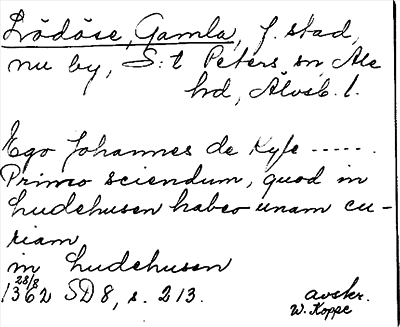 Lödöse, Gamla, f. stad,
nu by, S:t Peters sn, Ale
hd, Älvsb. l.
Ego Johannes de Kyle ......
Primo sciendum, quod in
Ludehusen habeo unam cu-
riam
in Ludehusen
28/8
1362 SD 8, s. 213.
avskr.
W. Koppe